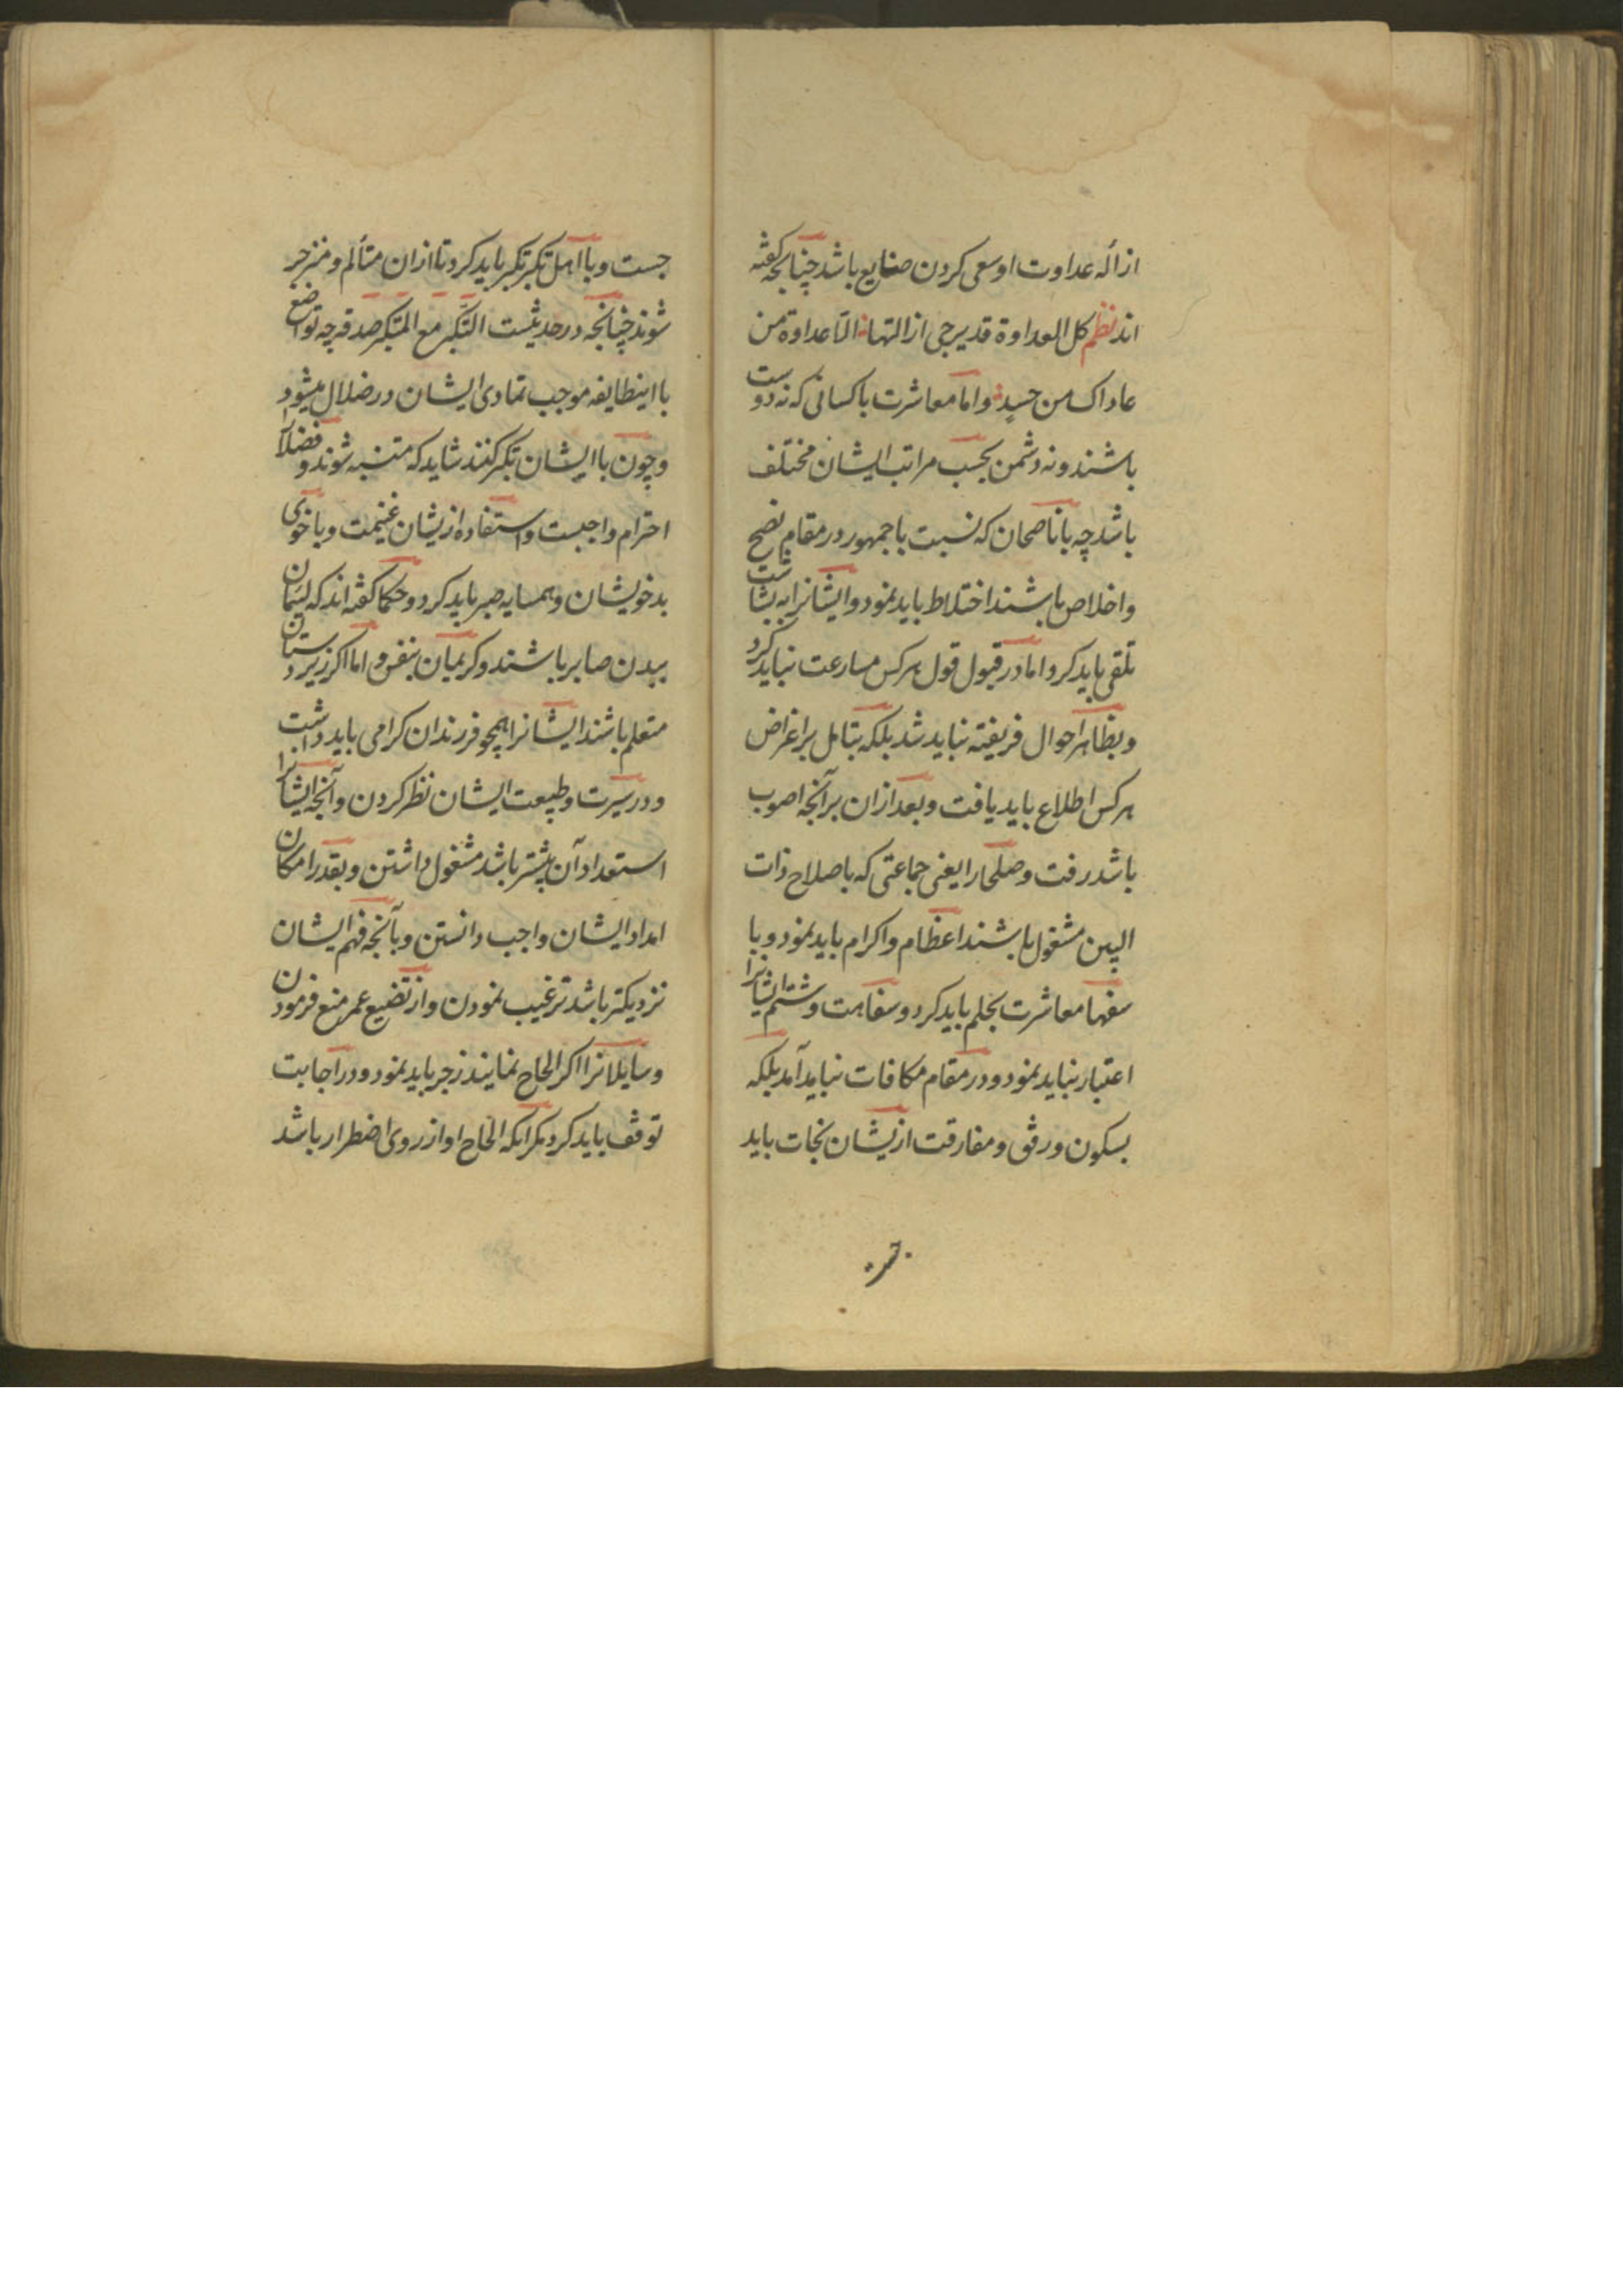 ازاله عداوت او سعی کردن ضایع باشد چنانچه گفته
اند نظم کل العداوة قد یرجی ازالتها الا عداوة من
عاداک من حسد و اما معاشرت با کسانی که نه دوست
باشند و نه دشمن بحسب مراتب ایشان مختلف
باشد چه با ناصحان که نسبت با جمهور در مقام نصح
و اخلاص باشند اختلاط باید نمود و ایشانرا به بشاشت
تلقی باید کرد اما در قبول قول هر کس مسارعت نباید کرد
و بظاهر احوال فریفته نباید شد بلکه بتامل بر اغراض
هر کس اطلاع باید یافت و بعد ازان بر آنچه اصوب
باشد رفت و صلحا را یعنی جماعتی که باصلاح ذات
البین مشغول باشند اعظام و اکرام باید نمود و با
سفها معاشرت بحلم باید کرد و سفاهت و شتم ایشانرا
اعتبار نباید نمود و در مقام مکافات نباید آمد بلکه
بسکون و رفق و مفارقت ازیشان نجات باید
جست و با اهل تکبر تکبر باید کرد تا ازان متألم و منزجر
شوند چنانچه در حدیثست التکبر مع المتکبر صدقه چه تواضع
با اینطایفه موجب تمادی ایشان در ضلال میشود
و چون با ایشان تکبر کنند شاید که متنبه شوند و فضلا
احترام واجبست و استفاده ازیشان غنیمت و با خوی
بد خویشان و همسایه صبر باید کرد و حکما گفته اند که لئیمان
ببدن صابر باشند و کریمان بنفس و اما اکر زیردستان
متعلم باشند ایشانرا همچو فرزندان کرامی باید داشت
و در سیرت و طبیعت ایشان نظر کردن و آنچه ایشانرا
استعداد آن بیشتر باشد مشغول داشتن و بقدر امکان
امداد ایشان واجب دانستن و بآنچه فهم ایشان
نزدیکتر باشد ترغیب نمودن و از تضییع عمر منع فرمودن
و سایلانرا اکر الحاح نمایند زجر باید نمود و در اجابت
توقف باید کرد مکر انکه الحاح او از روی اضطرار باشد